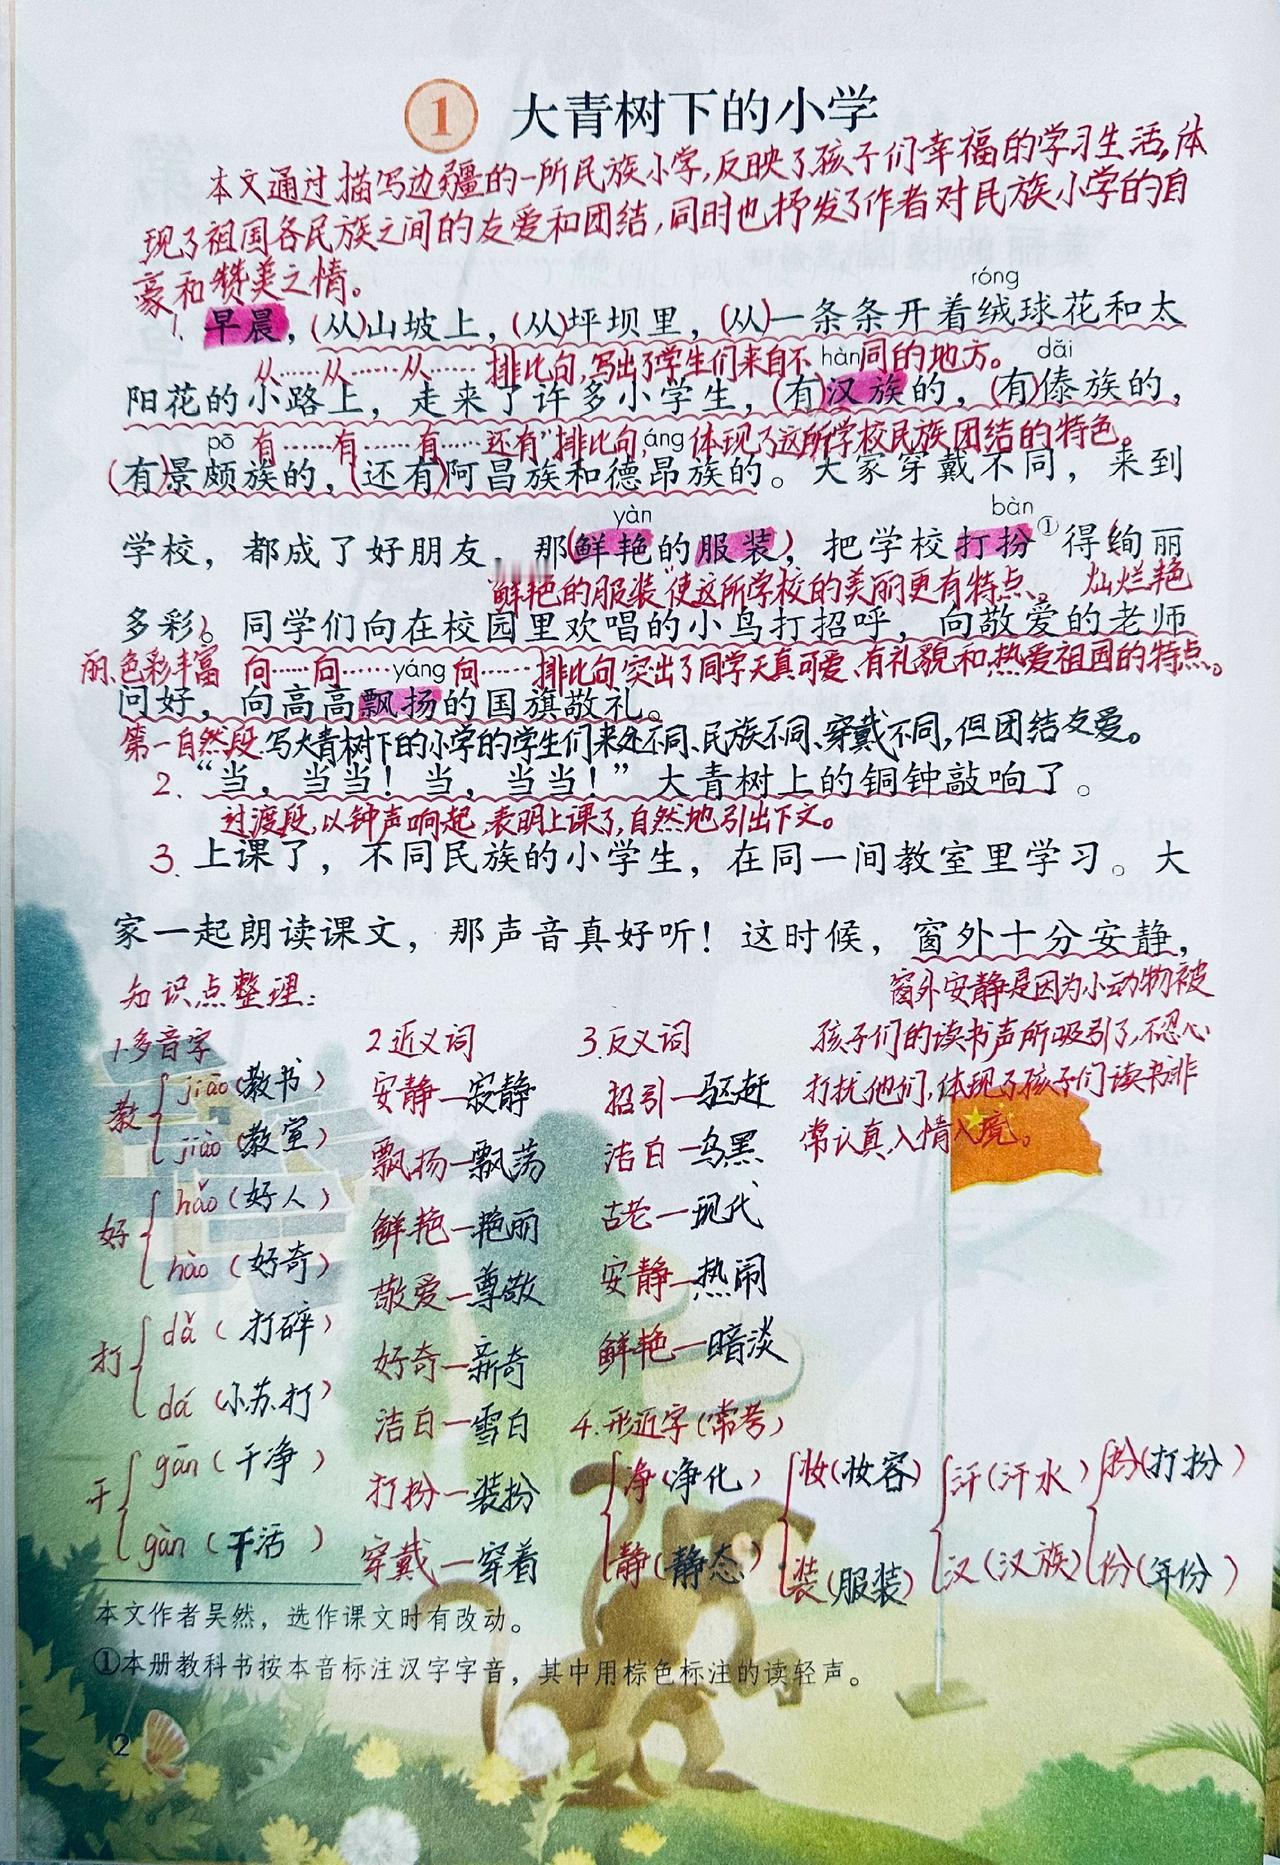 1 大青树下的小学
本文通过描写边疆的一所民族小学,反映了孩子们幸福的学习生活,体
现了祖国各民族之间的友爱和团结,同时也抒发了作者对民族小学的自
豪和赞美之情。
róng
1. 早晨，(从)山坡上，(从)坪坝里，(从)一条条开着绒球花和太
从……从……从…… 排比句,写出了学生们来自不同的地方。
hàn dǎi
阳花的小路上，走来了许多小学生，(有)汉族的，(有)傣族的，
有……有……有……还有"排比句,体现了这所学校民族团结的特色。
pō áng
(有)景颇族的，(还有)阿昌族和德昂族的。大家穿戴不同，来到
yàn bàn
学校，都成了好朋友。那(鲜艳的服装)，把学校打扮①得(绚丽
"鲜艳的服装"使这所学校的美丽更有特点。 灿烂艳
多彩)。同学们向在校园里欢唱的小鸟打招呼，向敬爱的老师
丽、色彩丰富 向……向……向……排比句 突出了同学天真可爱、有礼貌和热爱祖国的特点。
yáng
问好，向高高飘扬的国旗敬礼。
第一自然段:写大青树下的小学的学生们来处不同、民族不同、穿戴不同,但团结友爱。
2. “当，当当！当，当当！”大青树上的铜钟敲响了。
过渡段,以钟声响起,表明上课了,自然地引出下文。
3. 上课了，不同民族的小学生，在同一间教室里学习。大
家一起朗读课文，那声音真好听！这时候，窗外十分安静，
窗外安静是因为小动物被
孩子们的读书声所吸引了,不忍心
打扰他们,体现了孩子们读书非
常认真,入情入境。
知识点整理:
1.多音字
教 jiāo(教书)
jiào(教室)
好 hǎo(好人)
hào(好奇)
打 dǎ(打碎)
dá(小苏打)
干 gān(干净)
gàn(干活)
2.近义词
安静—寂静
飘扬—飘荡
鲜艳—艳丽
敬爱—尊敬
好奇—新奇
洁白—雪白
打扮—装扮
穿戴—穿着
3.反义词
招引—驱赶
洁白—乌黑
古老—现代
安静—热闹
鲜艳—暗淡
4.形近字(常考)
净(净化) 妆(妆容) 汗(汗水) 扮(打扮)
静(静态) 装(服装) 汉(汉族) 份(年份)
本文作者吴然，选作课文时有改动。
①本册教科书按本音标注汉字字音，其中用棕色标注的读轻声。
2